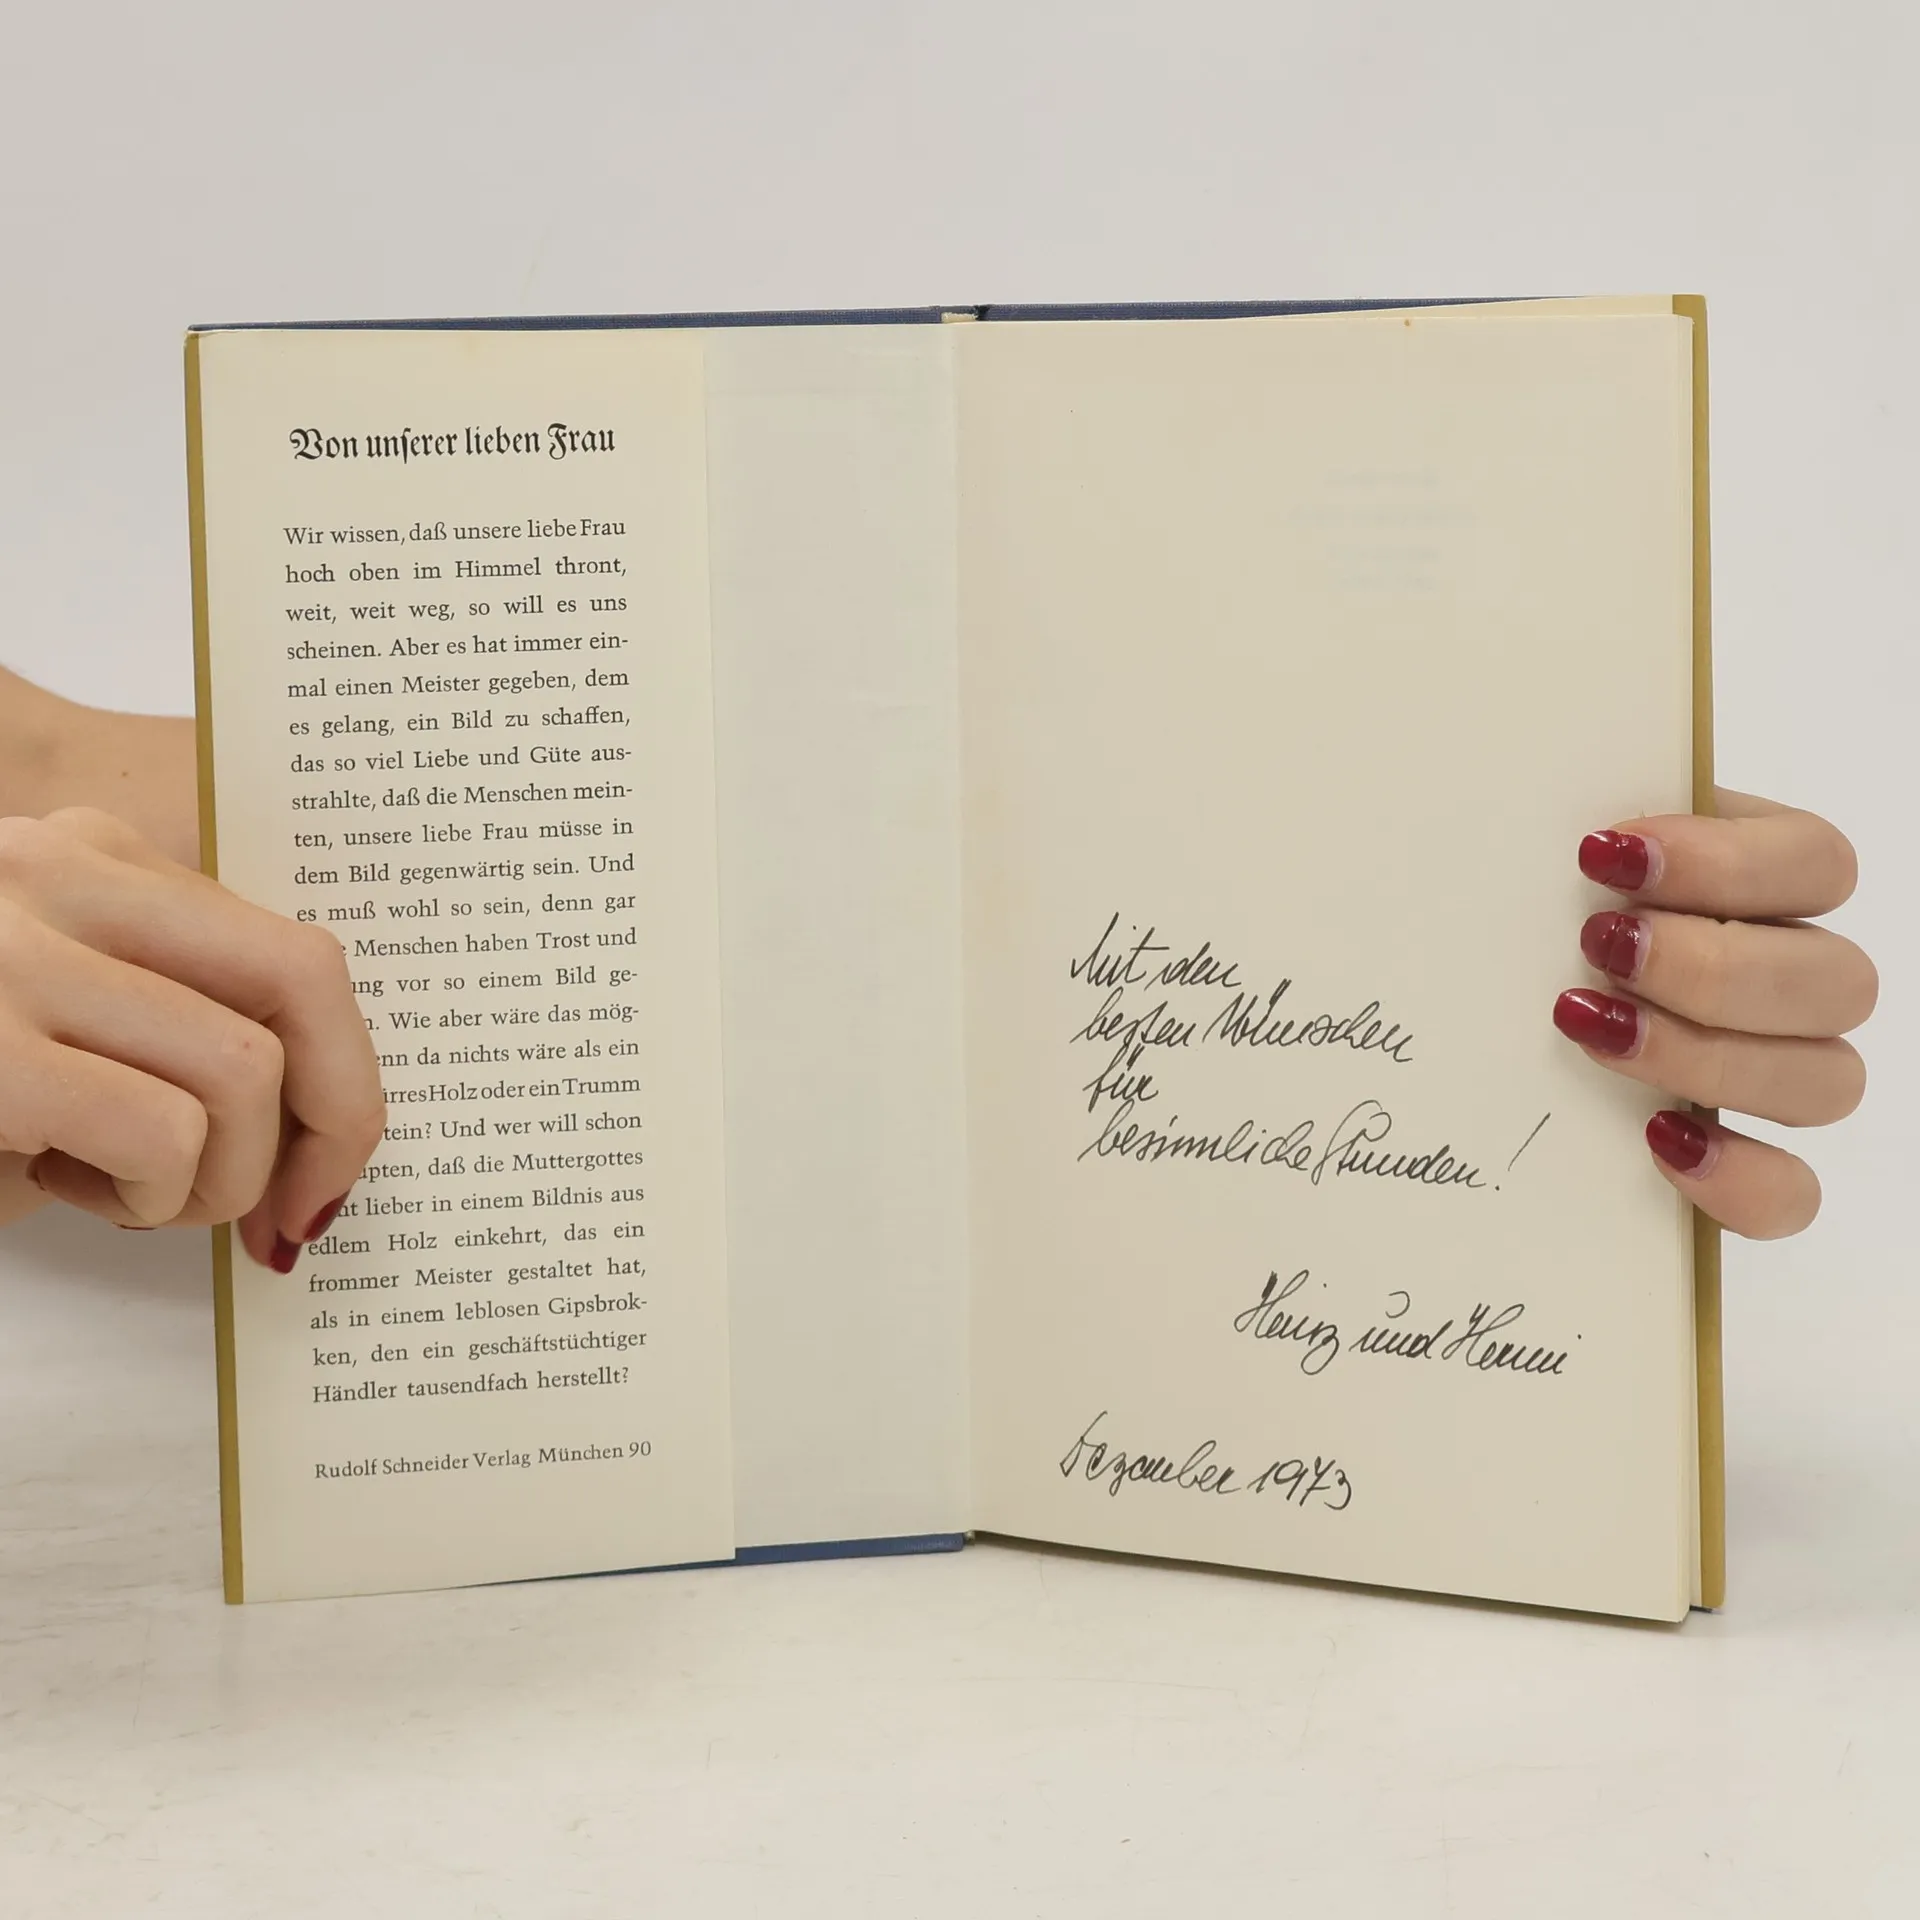 Von unserer lieben Frau
Wir wissen, daß unsere liebe Frau
hoch oben im Himmel thront,
weit, weit weg, so will es uns
scheinen. Aber es hat immer ein-
mal einen Meister gegeben, dem
es gelang, ein Bild zu schaffen,
das so viel Liebe und Güte aus-
strahlte, daß die Menschen mein-
ten, unsere liebe Frau müsse in
dem Bild gegenwärtig sein. Und
es muß wohl so sein, denn gar
Menschen haben Trost und
vor so einem Bild ge-
Wie aber wäre das mög-
da nichts wäre als ein
Holz oder ein Trumm
Und wer will schon
daß die Muttergottes
lieber in einem Bildnis aus
edlem Holz einkehrt, das ein
frommer Meister gestaltet hat,
als in einem leblosen Gipsbrok-
ken, den ein geschäftstüchtiger
Händler tausendfach herstellt?
Rudolf Schneider Verlag München 90
Mit den
besten Wünschen
für
besinnliche Stunden!
Heinz und Henni
Dezember 1973